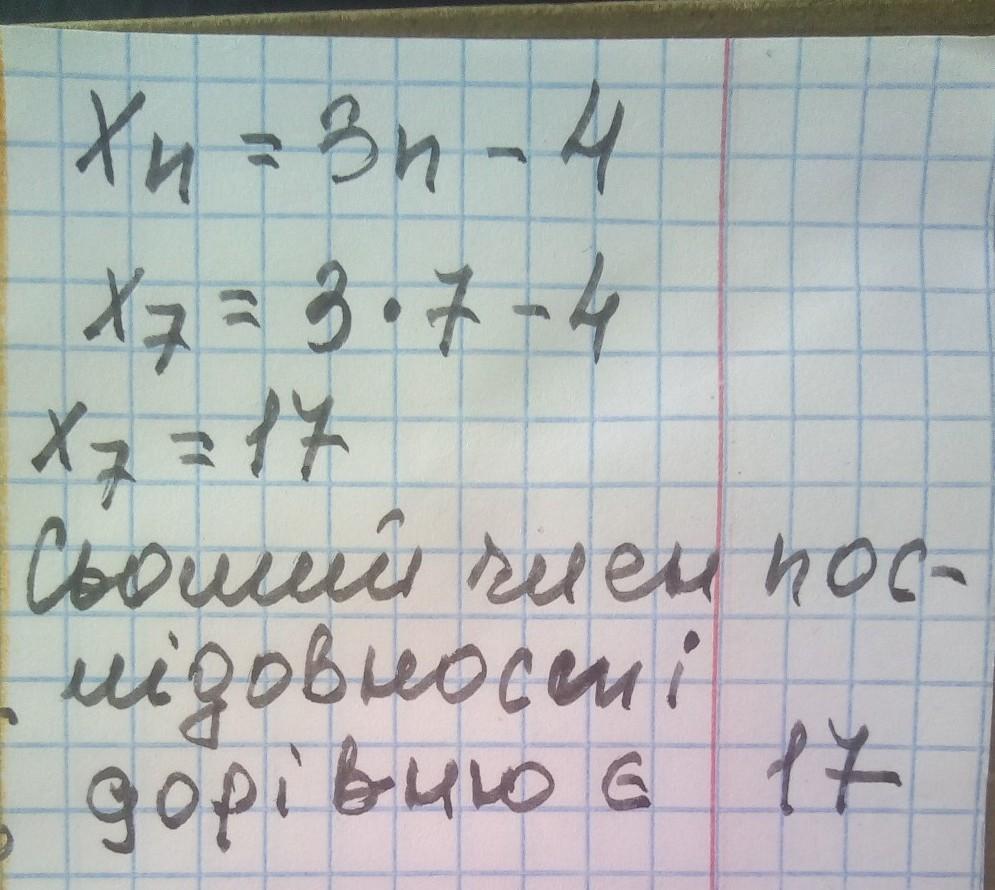 xₙ = 3n - 4
x₇ = 3 · 7 - 4
x₇ = 17
Сьомий член пос-
лідовності
дорівнює 17